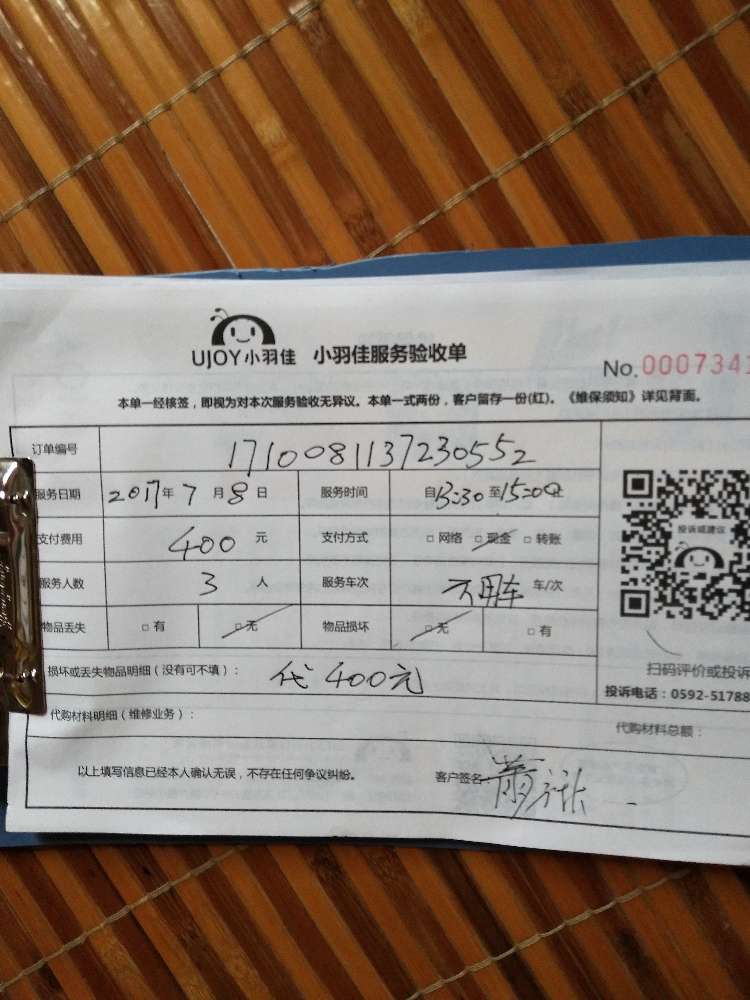 UJOY小羽佳 小羽佳服务验收单
No.0007341
本单一经核签，即视为对本次服务验收无异议。本单一式两份，客户留存一份(红)。《维保须知》详见背面。
订单编号 1710081137230552
服务日期 2017年7月8日 服务时间 自13:30至15:00止
支付费用 400元 支付方式 □网络 □现金 □转账
投诉或建议
服务人数 3人 服务车次 不用车 车/次
物品丢失 □有 □无 物品损坏 □无 □有
扫码评价或投诉
损坏或丢失物品明细（没有可不填）： 代400元
投诉电话：0592-51788
代购材料明细（维修业务）： 代购材料总额：
以上填写信息已经本人确认无误，不存在任何争议纠纷。 客户签名